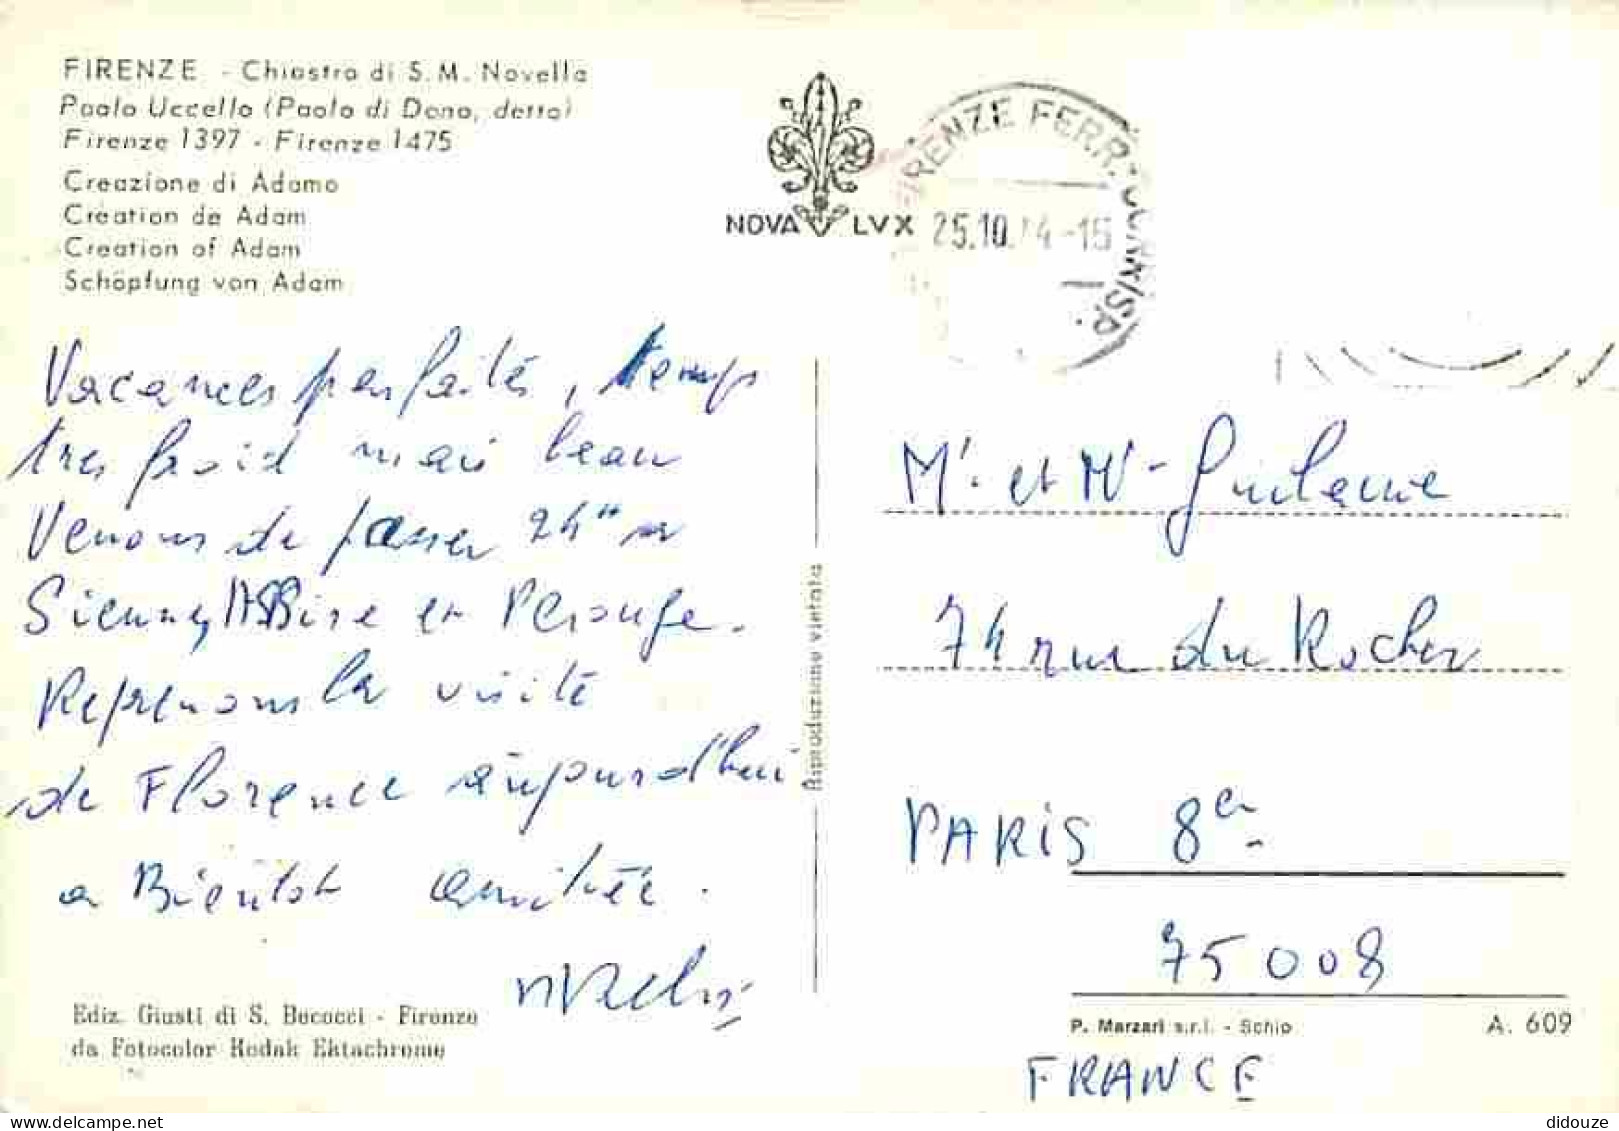 FIRENZE - Chiostro di S. M. Novella
Paolo Uccello (Paolo di Dono, detto)
Firenze 1397 - Firenze 1475
Creazione di Adamo
Création de Adam
Creation of Adam
Schöpfung von Adam
NOVA LVX
FIRENZE FERR. CORRISP.
25.10.74-15
Vacances parfaites, temps
tres froid mais beau
Venons de passer 24h a
Sienne, ASSise et Perouge.
Reprenons la visite
de Florence aujourd'hui
a Bientot amitiée.
Riproduzione vietata
Mr. et Me
74 rue du Rocher
PARiS 8e
75008
FRANCE
Ediz. Giusti di S. Becocci - Firenze
da Fotocolor Kodak Ektachrome
P. Marzari s.r.l. - Schio
A. 609
didouze